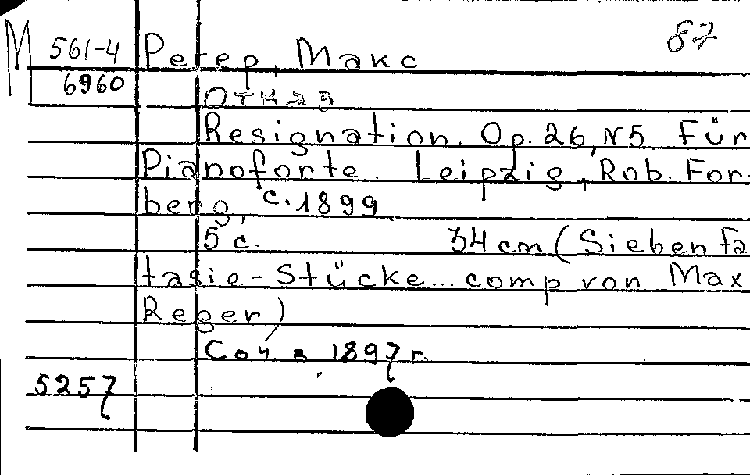 М 561-4 Регер, Макс 87
6960
Отказ
Resignation. Op. 26, N5 Für
Pianoforte. Leipzig, Rob. For-
berg, c. 1899
5 с. 34 cm (Sieben Fa
tasie-Stücke... comp von Max
Reger)
Соч. в 1897 г.
5257